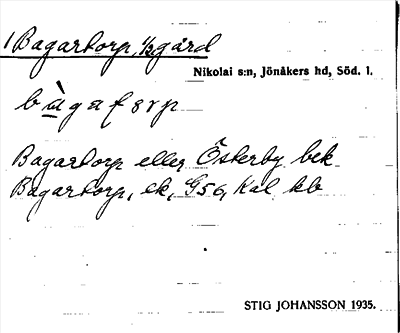 1 Bagartorp, 1/2 gård
Nikolai s:n, Jönåkers hd, Söd. l.
Bagartorp eller Österby bek
Bagartorp, ek, G56, Kal kb
STIG JOHANSSON 1935.